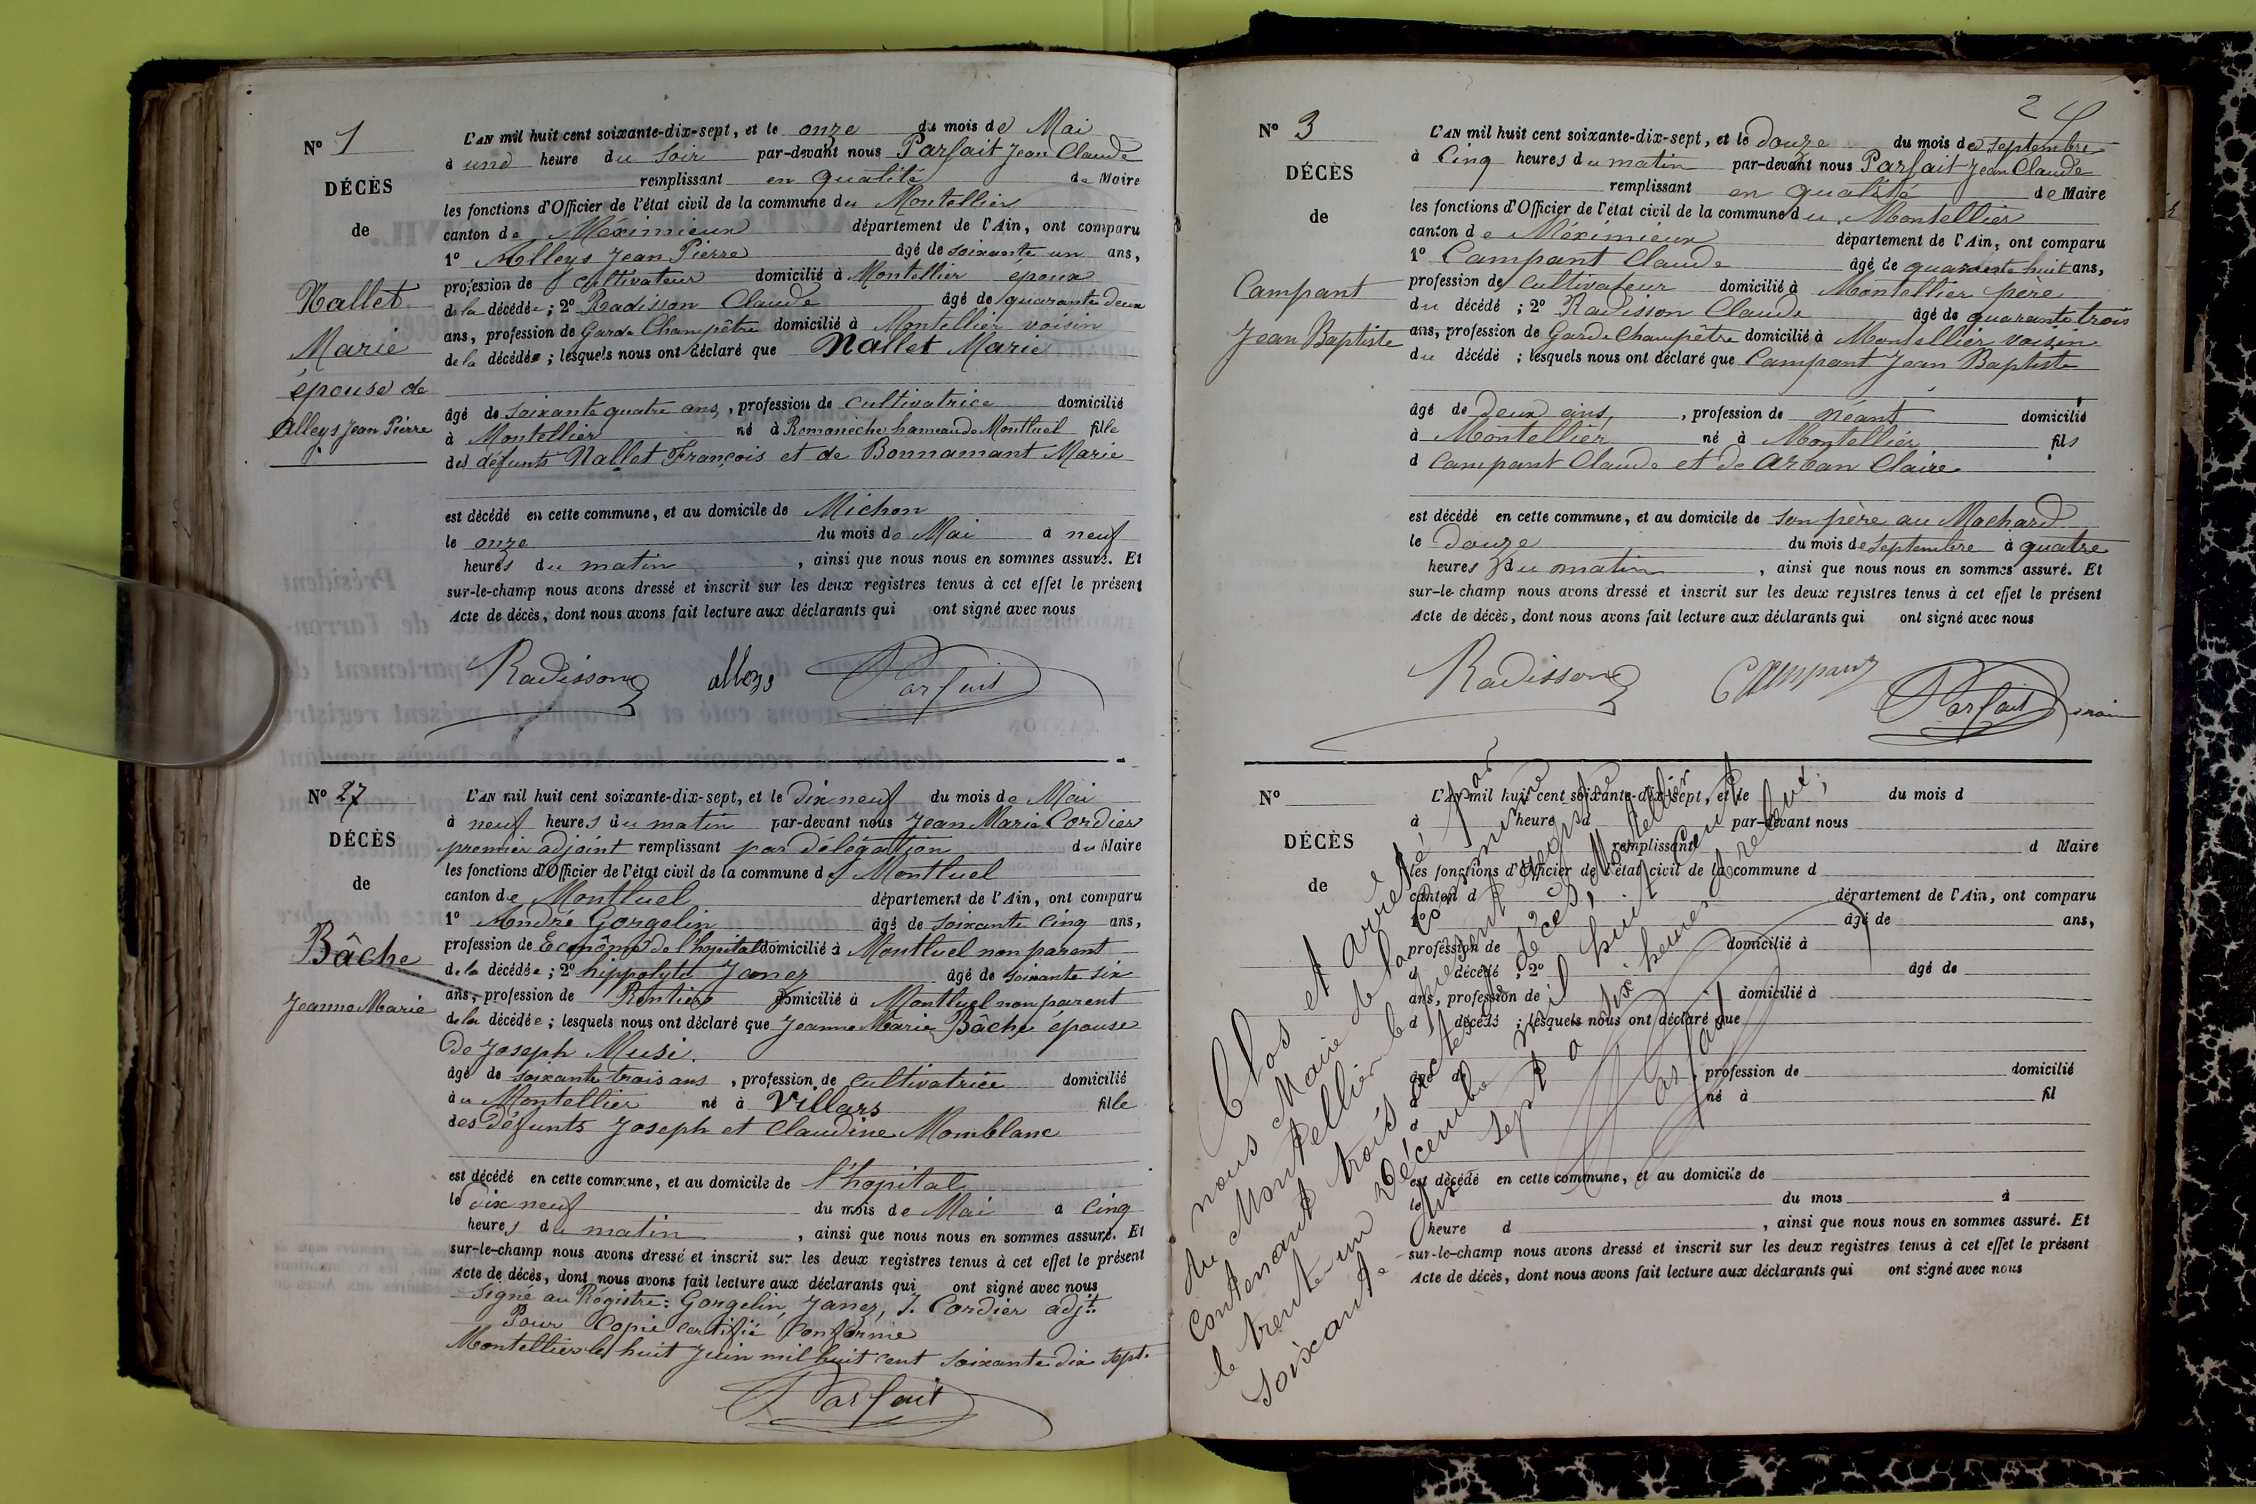 N° 1
DÉCÈS
de
Nallet
Marie
épouse de
Alleys Jean Pierre
L'AN mil huit cent soixante-dix-sept, et le onze du mois de Mai
à une heure du soir par-devant nous Parfait Jean Claude
remplissant en qualité de Maire
les fonctions d'Officier de l'état civil de la commune du Montellier
canton de Méximieux département de l'Ain, ont comparu
1° Alleys Jean Pierre âgé de soixante un ans,
profession de cultivateur domicilié à Montellier epoux
de la décédée; 2° Radisson Claude âgé de quarante deux
ans, profession de Garde Champêtre domicilié à Montellier voisin
de la décédée; lesquels nous ont déclaré que Nallet Marie
âgé de soixante quatre ans, profession de cultivatrice domicilié
à Montellier né à Romanèche hameau de Montluel fille
des défunts Nallet François et de Bonnamant Marie
est décédé en cette commune, et au domicile de Michon
le onze du mois de Mai à neuf
heures du matin, ainsi que nous nous en sommes assuré. Et
sur-le-champ nous avons dressé et inscrit sur les deux registres tenus à cet effet le présent
Acte de décès, dont nous avons fait lecture aux déclarants qui ont signé avec nous
Radisson alleys Parfait
N° 27
DÉCÈS
de
Bâche
Jeanne Marie
L'AN mil huit cent soixante-dix-sept, et le dix neuf du mois de Mai
à neuf heures du matin par-devant nous Jean Marie Cordier
premier adjoint remplissant par délégation du Maire
les fonctions d'Officier de l'état civil de la commune de Montluel
canton de Montluel département de l'Ain, ont comparu
1° André Gorgelin âgé de soixante cinq ans,
profession de Econôme de l'hopital domicilié à Montluel non parent
de la décédée; 2° hippolyte Janez âgé de soixante six
ans, profession de Rentier domicilié à Montluel non parent
de la décédée; lesquels nous ont déclaré que Jeanne Marie Bâche épouse
de Joseph Musi.
âgé de soixante trois ans, profession de cultivatrice domicilié
au Montellier né à Villars fille
des défunts Joseph et Claudine Momblanc
est décédé en cette commune, et au domicile de l'hopital
le dix neuf du mois de Mai à cinq
heures du matin, ainsi que nous nous en sommes assuré. Et
sur-le-champ nous avons dressé et inscrit sur les deux registres tenus à cet effet le présent
Acte de décès, dont nous avons fait lecture aux déclarants qui ont signé avec nous
signé au Régistre: Gorgelin, Janez, J. Cordier adjt.
Pour Copie certifié Conforme
Montellier le huit Juin mil huit cent soixante dix sept.
Parfait
2
N° 3
DÉCÈS
de
Campant
Jean Baptiste
L'AN mil huit cent soixante-dix-sept, et le douze du mois de septembre
à Cinq heures du matin par-devant nous Parfait Jean Claude
remplissant en qualité de Maire
les fonctions d'Officier de l'état civil de la commune du Montellier
canton de Méximieux département de l'Ain, ont comparu
1° Campant Claude âgé de quarante huit ans,
profession de cultivateur domicilié à Montellier père
du décédé; 2° Radisson Claude âgé de quarante trois
ans, profession de Garde Champêtre domicilié à Montellier voisin
du décédé; lesquels nous ont déclaré que Campant Jean Baptiste
âgé de deux ans, profession de néant domicilié
à Montellier né à Montellier fils
d Campant Claude et de Arban Claire
est décédé en cette commune, et au domicile de son père au Machard
le douze du mois de septembre à quatre
heures du matin, ainsi que nous nous en sommes assuré. Et
sur-le-champ nous avons dressé et inscrit sur les deux registres tenus à cet effet le présent
Acte de décès, dont nous avons fait lecture aux déclarants qui ont signé avec nous
Radisson Campant Parfait maire
N°
DÉCÈS
de
L'AN mil huit cent soixante-dix-sept, et le du mois d
à heure d par-devant nous
remplissant d Maire
les fonctions d'Officier de l'état civil de la commune d
canton d département de l'Ain, ont comparu
1° âgé de ans,
profession de domicilié à
d décédé; 2° âgé de
ans, profession de domicilié à
d décédé; lesquels nous ont déclaré que
âgé de profession de domicilié
à né à fil
d
est décédé en cette commune, et au domicile de
le du mois à
heure d, ainsi que nous nous en sommes assuré. Et
sur-le-champ nous avons dressé et inscrit sur les deux registres tenus à cet effet le présent
Acte de décès, dont nous avons fait lecture aux déclarants qui ont signé avec nous
Clos et arrêté par
nous Maire de la commune
du Montellier le présent registre
contenant trois actes de décès, Montellier
le trente un Décembre mil huit cent
soixante dix sept à six heures de relevé;
Parfait